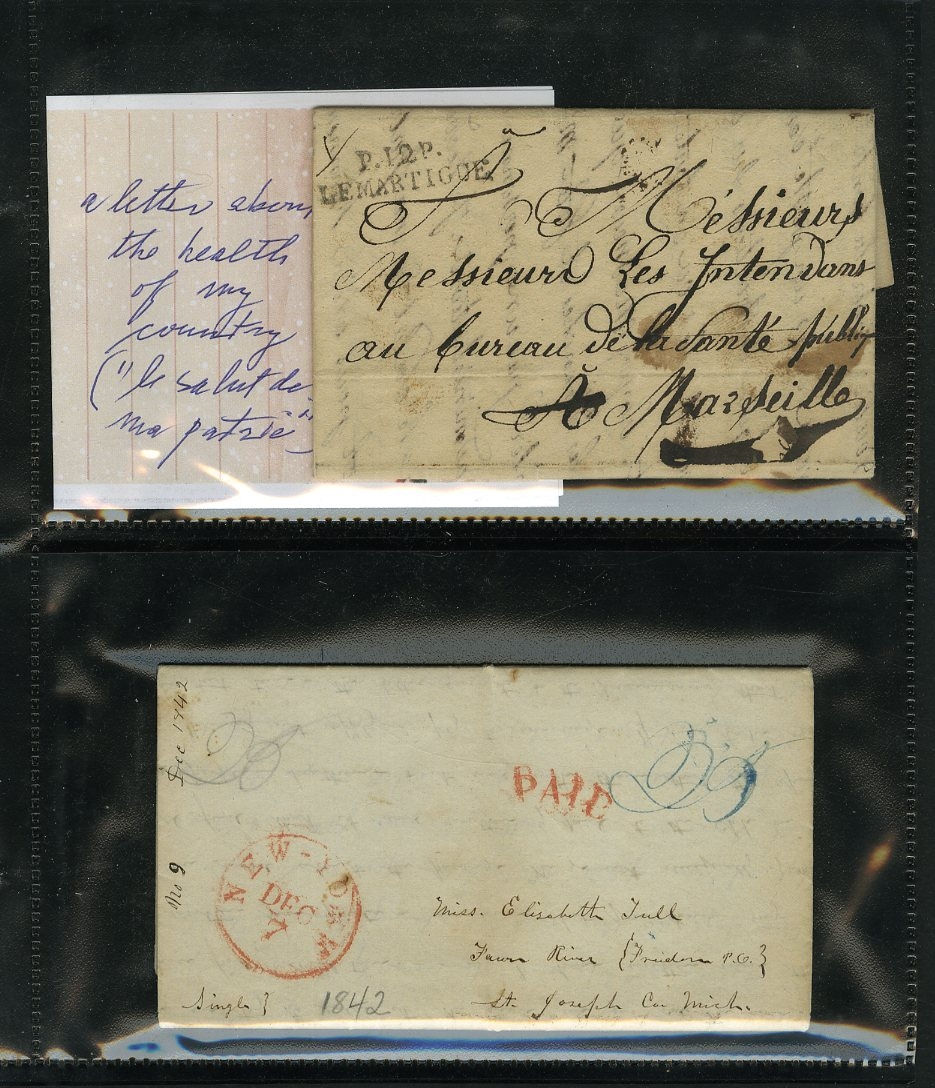 a letter abou
the health
of my
country
("le salut de
ma patrie"
P.12P.
LEMARTIGUE.
A Messieurs
Messieurs Les Intendans
au bureau de la Santé publiq
A Marseille
Dec 1842
No 9
PAID
25
NEW-YORK
DEC
7
Miss. Elisabeth Tull
Fawn River {Freedom P.O.}
St. Joseph Co. Mich.
Single }
1842